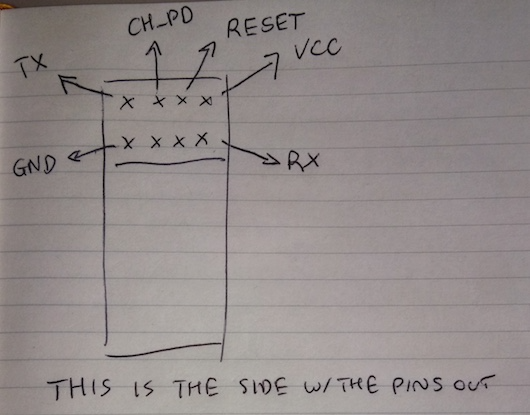 CH_PD
RESET
TX
VCC
x x x x
x x x x
GND
RX
THIS IS THE SIDE W/THE PINS OUT